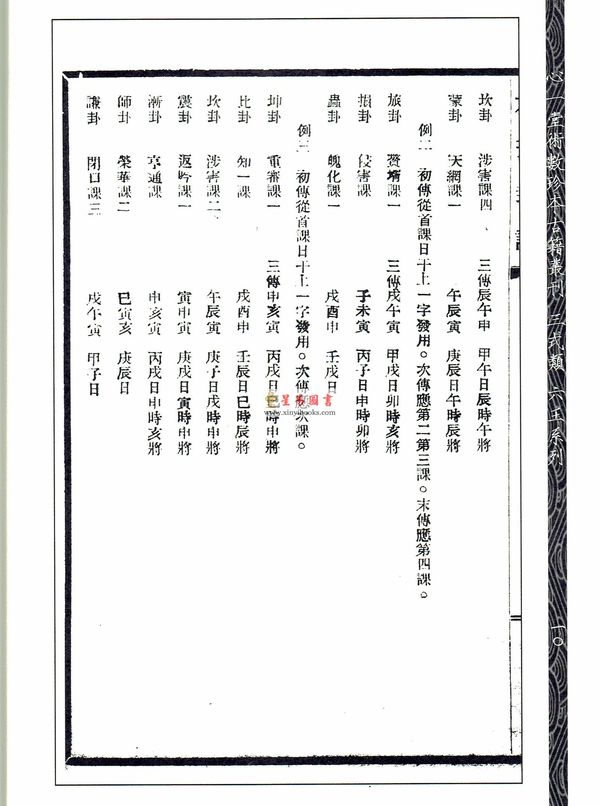 心一堂術數珍本古籍叢刊 三式類 六壬系列
一〇
坎卦 涉害課四、 三傳辰午申 甲午日辰時午將
蒙卦 天網課一 午辰寅 庚辰日午時辰將
例二 初傳從首課日干上一字發用。次傳應第二第三課。末傳應第四課。
旅卦 贅壻課一 三傳戌午寅 甲戌日卯時亥將
損卦 侵害課 子未寅 丙子日申時卯將
蠱卦 魄化課一 戌酉申 壬戌日
例三 初傳從首課日干上一字發用。次傳 次課。
坤卦 重審課一 三傳申亥寅 丙戌日巳時申將
比卦 知一課 戌酉申 壬辰日巳時辰將
坎卦 涉害課二、 午辰寅 庚子日戌時申將
震卦 返吟課一 寅申寅 庚戌日寅時申將
漸卦 亨通課一 申亥寅 丙戌日申時亥將
師卦 榮華課二 巳寅亥 庚辰日
謙卦 閉口課三 戌午寅 甲子日
星易圖書
www.xinyibooks.com